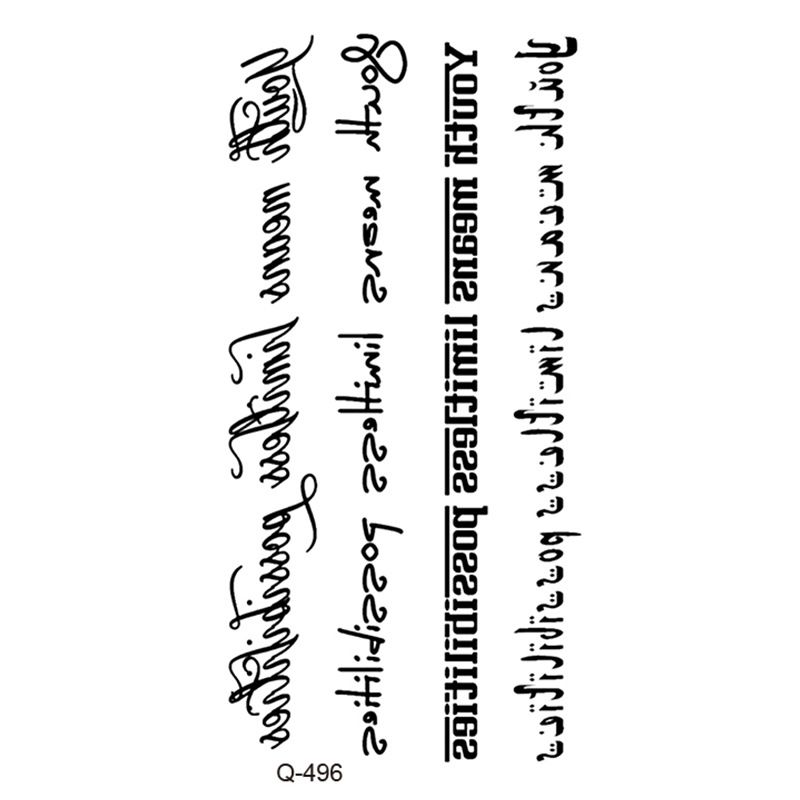 Youth means limitless possibilities
youth means limitless possibilities
Youth means limitless possibilities
Youth means limitless possibilities
Q-496